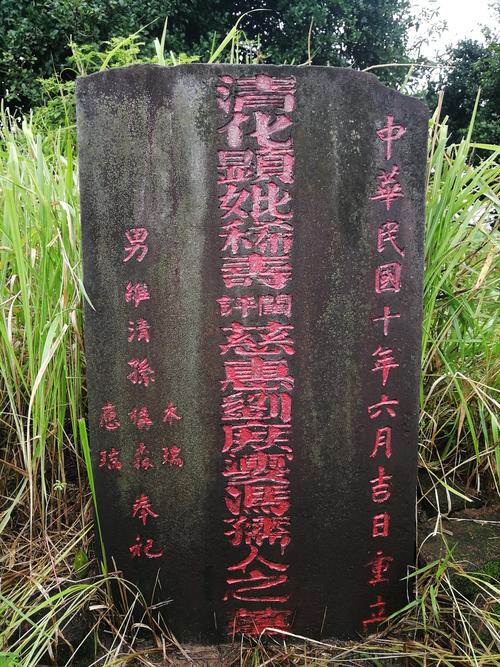 中華民國十年六月吉日重立
清化顯妣稀壽慈惠劉馮孺人之墓
木瑞
男維清孫森奉祀
應瑞